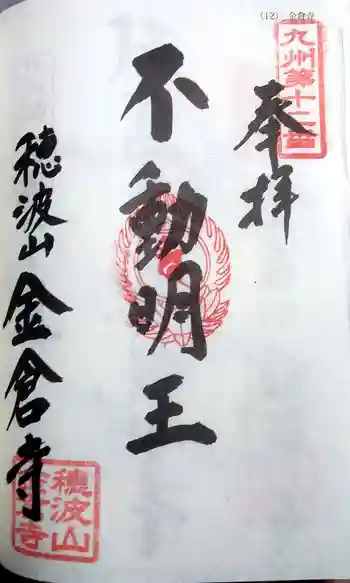 (12) 金倉寺
九州第十二番
奉拝
不動明王
穂波山 金倉寺
穂波山
金倉寺